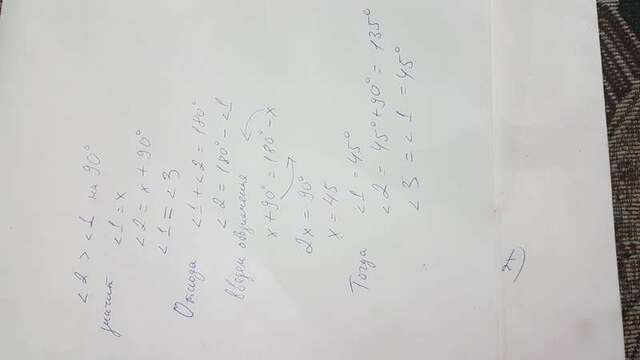 ∠2 > ∠1 на 90°
значит ∠1 = x
∠2 = x + 90°
∠1 = ∠3
Отсюда ∠1 + ∠2 = 180°
∠2 = 180° - ∠1
введем обозначения
x + 90° = 180° - x
2x = 90°
x = 45
Тогда ∠1 = 45°
∠2 = 45° + 90° = 135°
∠3 = ∠1 = 45°